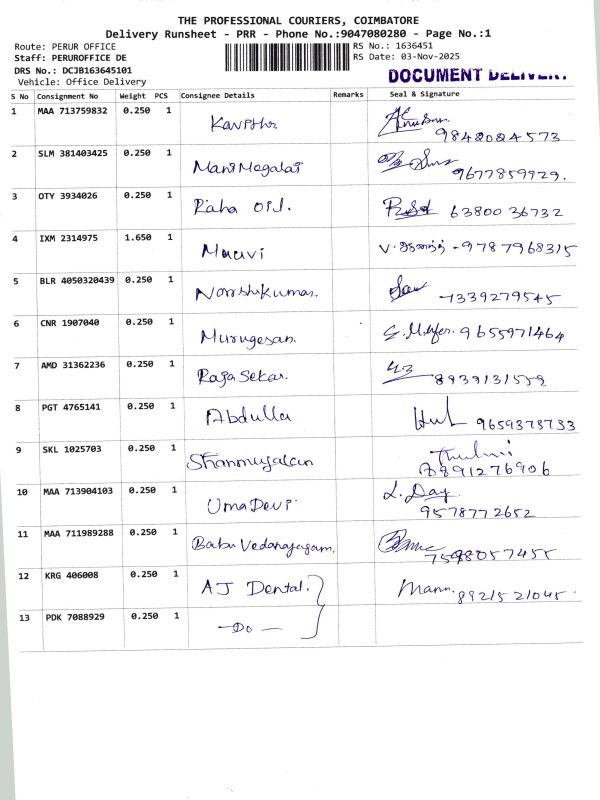 THE PROFESSIONAL COURIERS, COIMBATORE
Delivery Runsheet - PRR - Phone No.:9047080280 - Page No.:1
Route: PERUR OFFICE
RS No.: 1636451
Staff: PERUROFFICE DE
RS Date: 03-Nov-2025
DRS No.: DCJB163645101
Vehicle: Office Delivery
DOCUMENT DELIVERY
S No Consignment No Weight PCS Consignee Details Remarks Seal & Signature
1 MAA 713759832 0.250 1 Kavitha
9842024573
2 SLM 381403425 0.250 1 ManiMegalai
9677859929.
3 OTY 3934026 0.250 1 63800 36732
4 IXM 2314975 1.650 1 V. - 9787968315
5 BLR 4050320439 0.250 1
7339279545
6 CNR 1907040 0.250 1 Murugesan. 9655971464
7 AMD 31362236 0.250 1 RajaSekar.
8939131559
8 PGT 4765141 0.250 1 Abdulla
9659373733
9 SKL 1025703 0.250 1 Shanmugalan
8891276906
10 MAA 713904103 0.250 1 UmaDevi L. Day
9578772652
11 MAA 711989288 0.250 1 Babu Vedanayagam.
7598057455
12 KRG 406008 0.250 1 AJ Dental. Mann. 8921521045.
13 PDK 7088929 0.250 1 —Do—